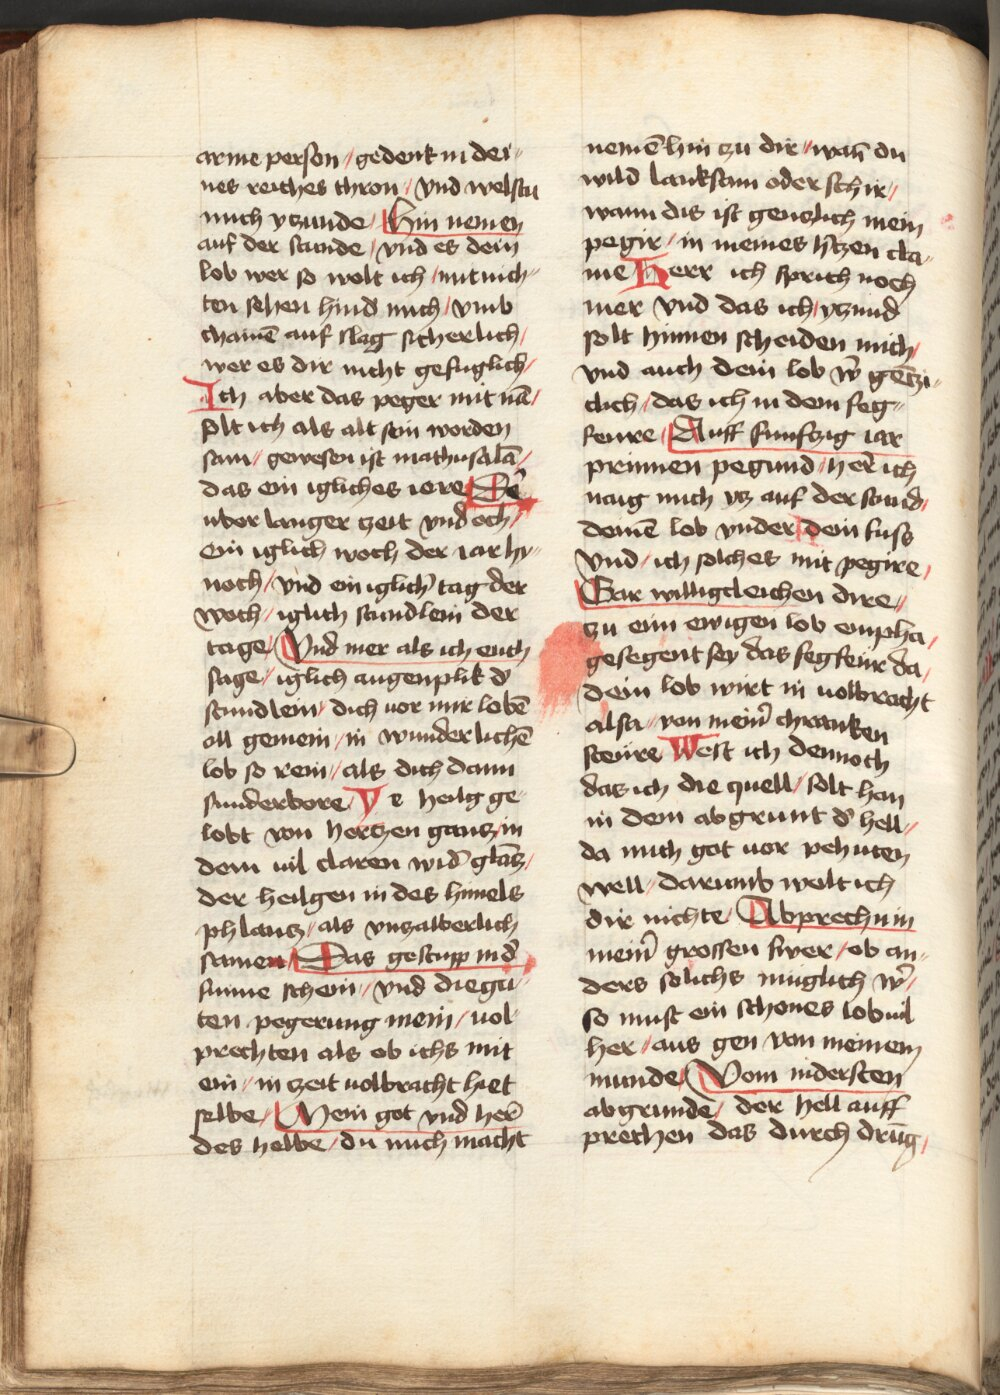 arme person / gedenk in dei-
nes reiches thron / vnd welstu
mich yczunde / Hin nemen
auf der stunde / vnd es dein
lob wer so wolt ich / mit nich-
ten sehen hind mich / vmb
chainē auf slag sicherlich /
wer es dir nicht gefuglich /
Ich aber das peger mit nā /
solt ich als alt sein worden
sam / gewesen ist mathusalā /
das ein igliches iere / Dē
uber langer czeit vnd och /
ein iglich woch der iar hy-
noch / vnd ein iglich tag der
woch / iglich stundlein der
tage / Vnd mer als ich euch
sage / iglich augenplik d'
stundlein / dich vor mir lobē
all gemein / in wunderlichē
lob so rein / als dich dann
sunderbore / Ye heilg ge-
lobt von herczen gancz in
dem vil claren wid' glācz /
der heilgen in des himels
phlancz / als vnczalberlich
samen / Das gestupp in d'
sunne schein / vnd die gu-
ten pegerung mein / uol-
prechten als ob ichs mit
ein / in czeit uolbracht hiet
selbe / Mein got vnd her̄
des helbe / du mich macht
nemē hin czu dir / wan̄ du
wild lanksam oder schir /
wann das ist genczlich mein
pegir / in meines h'czen cla-
me Herr ich sprich noch
mer vnd das ich / yczund
solt hinnen scheiden mich /
vnd auch dein lob w' gēczi-
clich / das ich in dem feg-
feure / Auff funfczig iar
prinnen pegund / her̄ ich
naig mich ycz auf der stund /
deinē lob vnder dein fuss
vnd / ich solches mit pegire /
Gar williglichen dire /
czu eim ewigen lob empha /
gesegent sey das fegfeur da /
dein lob wirt in uolbracht
alsa / von mein' chranken
steure West ich dennoch
das ich die quell / solt han
in dem abgrunt d' hell /
da mich got vor pehuten
well / darumb wolt ich
dir nichte / Abprechn in
mein' grossen swer / ob an-
ders solichs muglich w' /
so must ein schones lob uil
her / aus gen von meinem
munde / Vom nidersten
abgrunde / der hell auff
prechen das durch drūg /